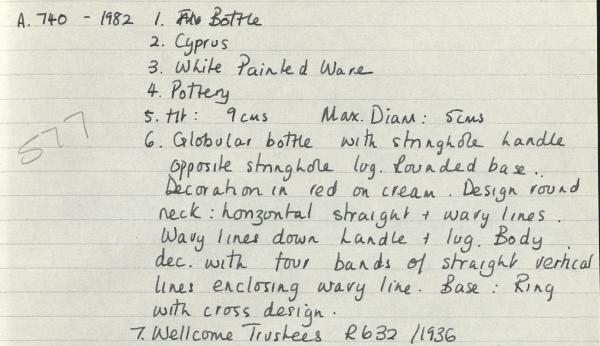 A. 740 - 1982 1. Bottle
2. Cyprus
3. White Painted Ware
4. Pottery
5. Ht: 9cms Max. Diam: 5cms
577
6. Globular bottle with stringhole handle
opposite stringhole lug. Rounded base..
Decoration in red on cream. Design round
neck: horizontal straight + wavy lines.
Wavy lines down handle + lug. Body
dec. with four bands of straight vertical
lines enclosing wavy line. Base: Ring
with cross design.
7. Wellcome Trustees R632 /1936